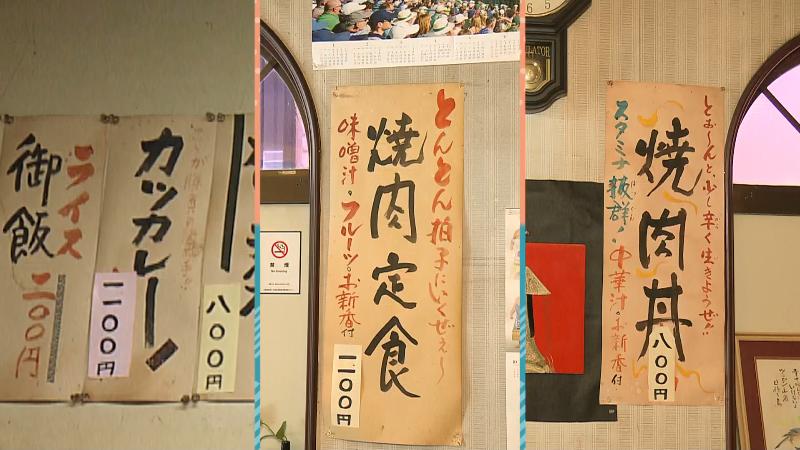 ライス
御飯
二〇〇円
カツカレー
一一〇〇円
八〇〇円
禁煙
No Smoking
とんとん拍子にいくぜぇ〜
焼肉定食
味噌汁。フルーツ。お新香付
一一〇〇円
6 5
とぉ〜んと少し辛く生きようぜ!!
焼肉丼
八〇〇円
スタミナ抜群!
中華汁。お新香付